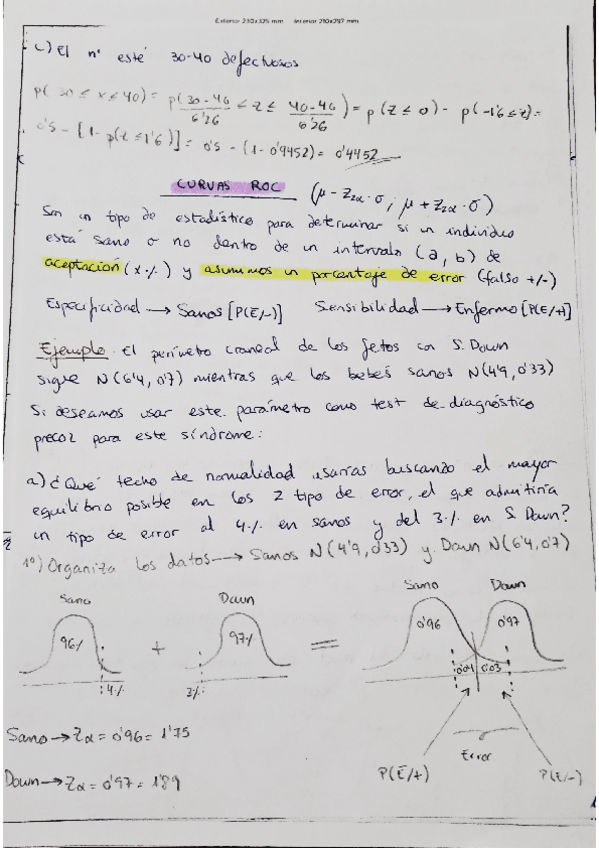 Exterior 230x325 mm Interior 210x297 mm
c) El nº esté 30-40 defectuosos
p(30 ≤ x ≤ 40) = p(30-40/6'26 ≤ z ≤ 40-40/6'26) = p(z ≤ 0) - p(-1'6 ≤ z) =
0'5 - [1- p(z ≤ 1'6)] = 0'5 - (1-0'9452) = 0'4452
CURVAS ROC (μ - Z₂α · σ ; μ + Z₂α · σ)
Son un tipo de estadístico para determinar si un individuo
está sano o no dentro de un intervalo (a, b) de
aceptación (x %) y asumimos un porcentaje de error (falso +/-)
Especificidad → Sanos [P(E/-)] Sensibilidad → Enfermo [P(E/+)]
Ejemplo. El perímetro craneal de los fetos con S. Down
sigue N(6'4, 0'7) mientras que los bebés sanos N(4'9, 0'33)
Si deseamos usar este parámetro como test de diagnóstico
precoz para este síndrome:
a) ¿Qué techo de normalidad usarías buscanzo el mayor
equilibrio posible en los 2 tipo de error, el que admitiría
un tipo de error al 4% en sanos y del 3% en S. Down?
1º) Organiza los datos → Sanos N(4'9, 0'33) y Down N(6'4, 0'7)
Sano Down Sano Down
96% + 97% = 0'96 0'97
4% 3% 0'04 0'03
Sano → Zα = 0'96 = 1'75
Error
Down → Zα = 0'97 = 1'89
P(Ē/+) P(E/-)